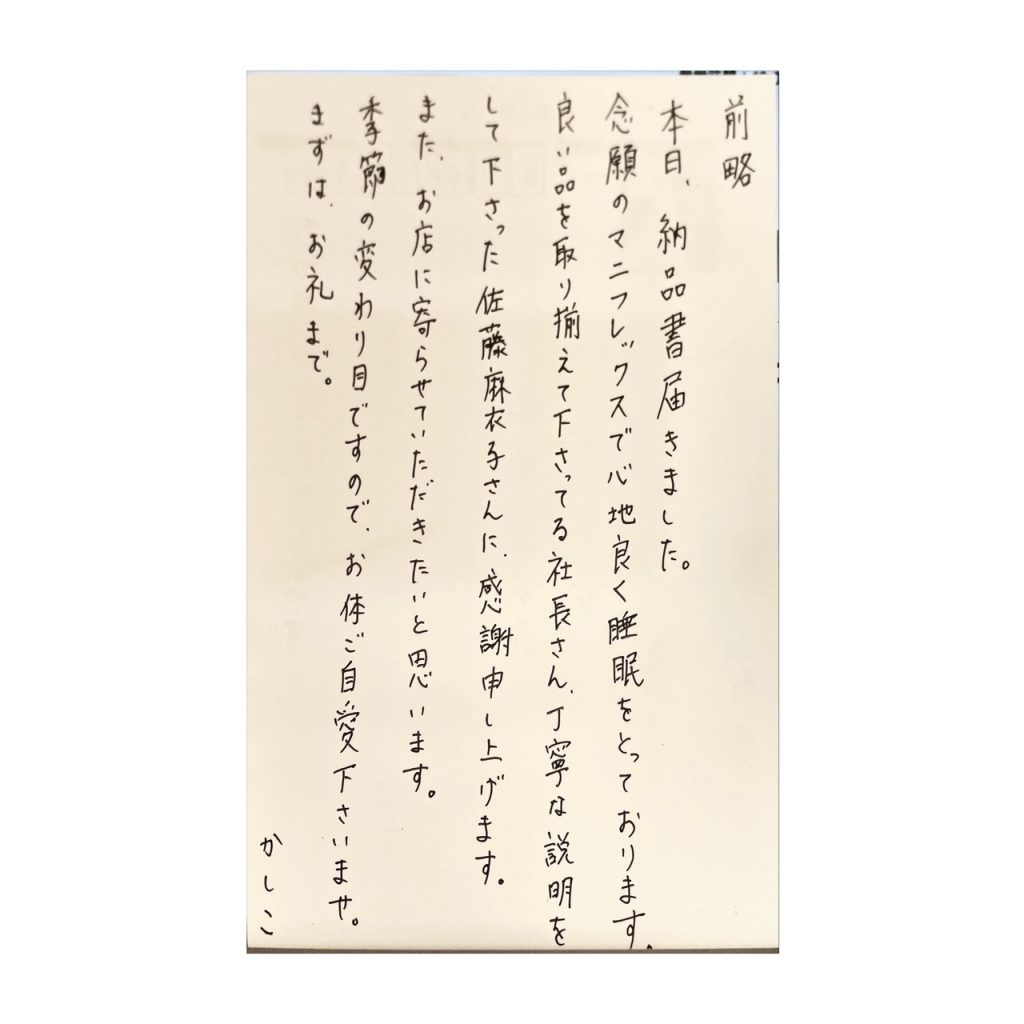 前略
本日、納品書届きました。
念願のマニフレックスで心地良く睡眠をとっております。
良い品を取り揃えて下さってる社長さん、丁寧な説明を
して下さった佐藤麻衣子さんに、感謝申し上げます。
また、お店に寄らせていただきたいと思います。
季節の変わり目ですので、お体ご自愛下さいませ。
まずは、お礼まで。
かしこ